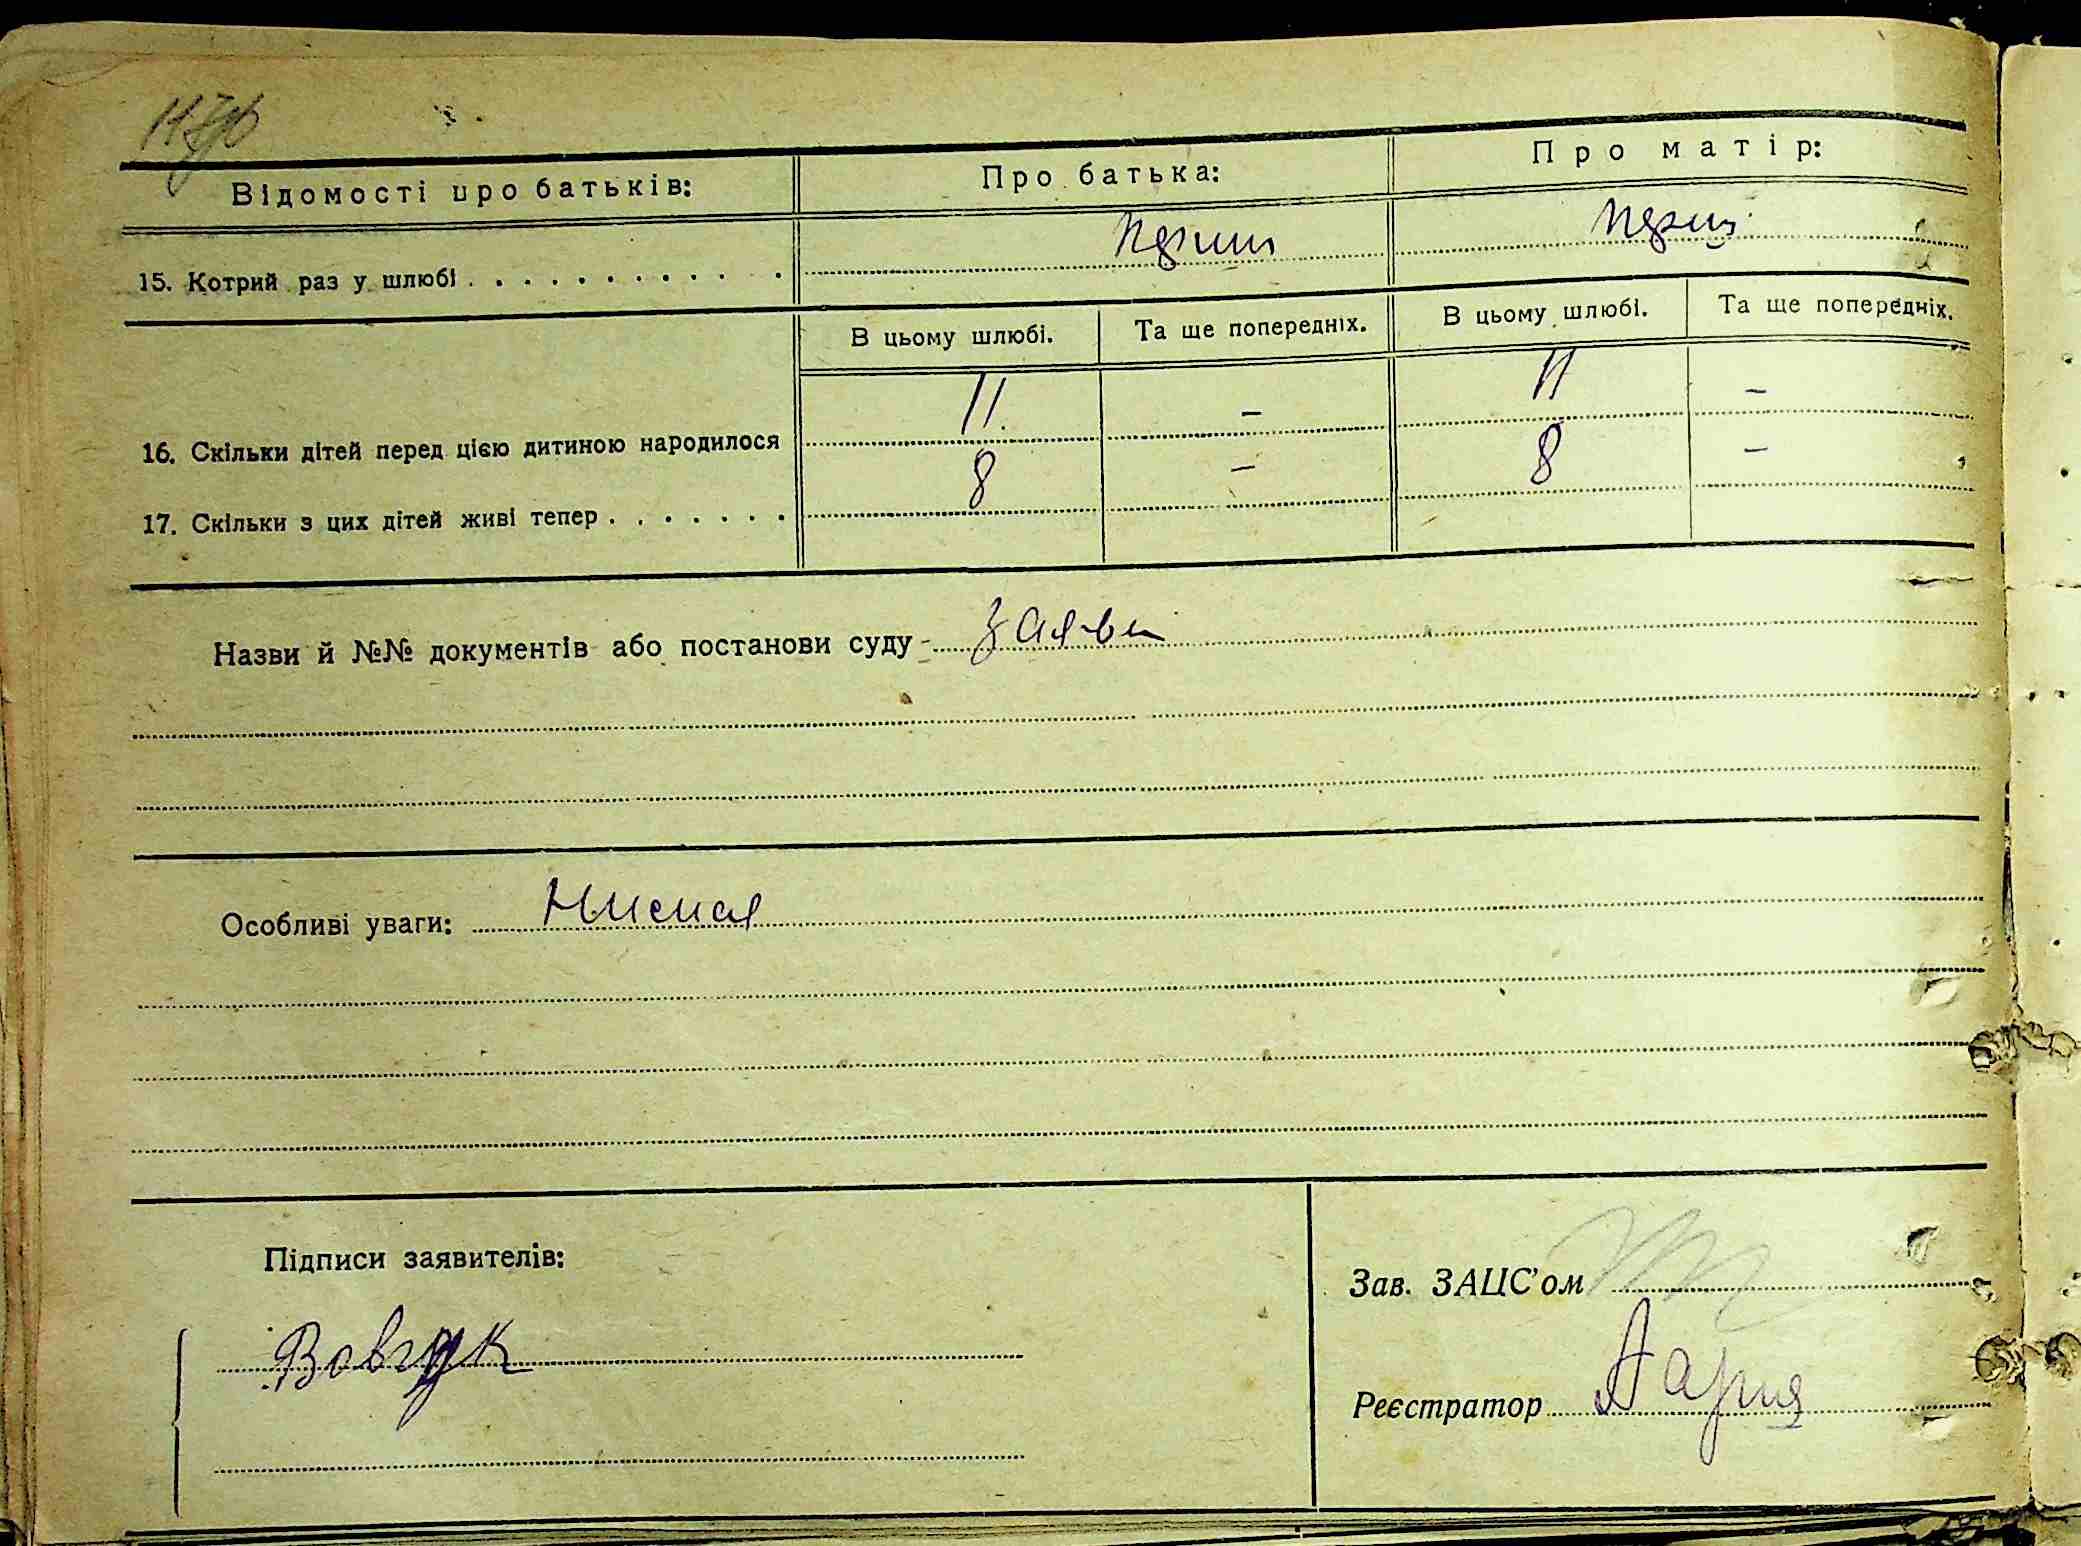 Відомості про батьків: Про батька: Про матір:
15. Котрий раз у шлюбі . . . . . . . . . . . .
В цьому шлюбі. Та ще попередніх. В цьому шлюбі. Та ще попередніх.
16. Скільки дітей перед цією дитиною народилося 11 - 11 -
17. Скільки з цих дітей живі тепер . . . . . . . 8 - 8 -
Назви й №№ документів або постанови суду - заяви
Особливі уваги:
Підписи заявителів:
Зав. ЗАЦС'ом
Реєстратор